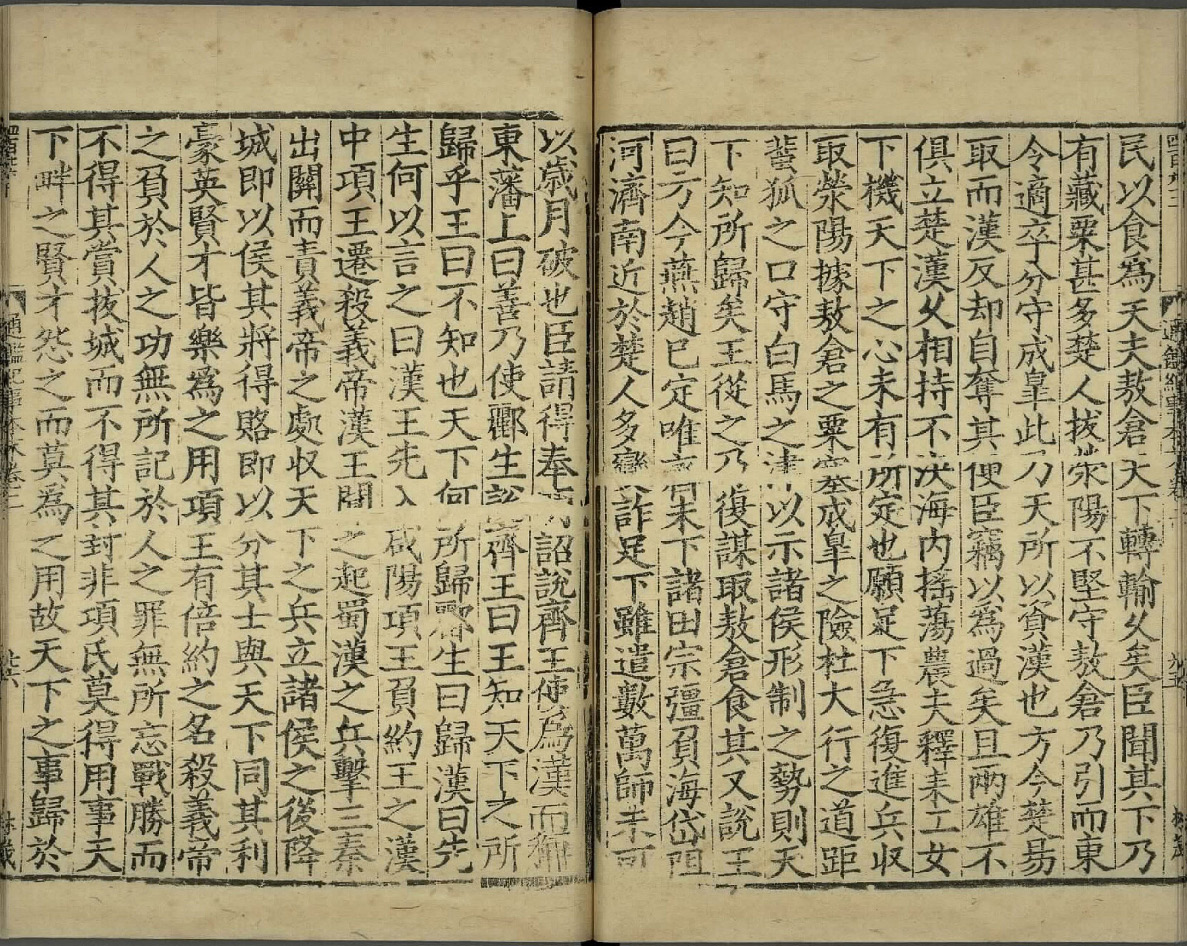 民以食爲天夫敖倉天下轉輸久矣臣聞其下乃
有藏粟甚多楚人拔滎陽不堅守敖倉乃引而東
令適卒分守成皐此乃天所以資漢也方今楚易
取而漢反却自奪其便臣竊以爲過矣且兩雄不
俱立楚漢久相持不决海内揺蕩農夫釋耒工女
下機天下之心未有所定也願足下急復進兵収
取滎陽據敖倉之粟塞成皐之險杜大行之道距
蜚狐之口守白馬之津以示諸侯形制之勢則天
下知所歸矣王從之乃復謀取敖倉食其又說王
曰方今燕趙已定唯齊未下諸田宗彊負海岱阻
河濟南近於楚人多變詐足下雖遣數萬師未可
以歳月破也臣請得奉明詔說齊王使爲漢而稱
東藩上曰善乃使酈生說齊王曰王知天下之所
歸乎王曰不知也天下何所歸酈生曰歸漢曰先
生何以言之曰漢王先入咸陽項王負約王之漢
中項王遷殺義帝漢王聞之起蜀漢之兵擊三秦
出關而責義帝之處収天下之兵立諸侯之後降
城即以侯其將得賂即以分其士與天下同其利
豪英賢才皆樂爲之用項王有倍約之名殺義帝
之負於人之功無所記於人之罪無所忘戰勝而
不得其賞拔城而不得其封非項氏莫得用事天
下畔之賢才怨之而莫爲之用故天下之事歸於